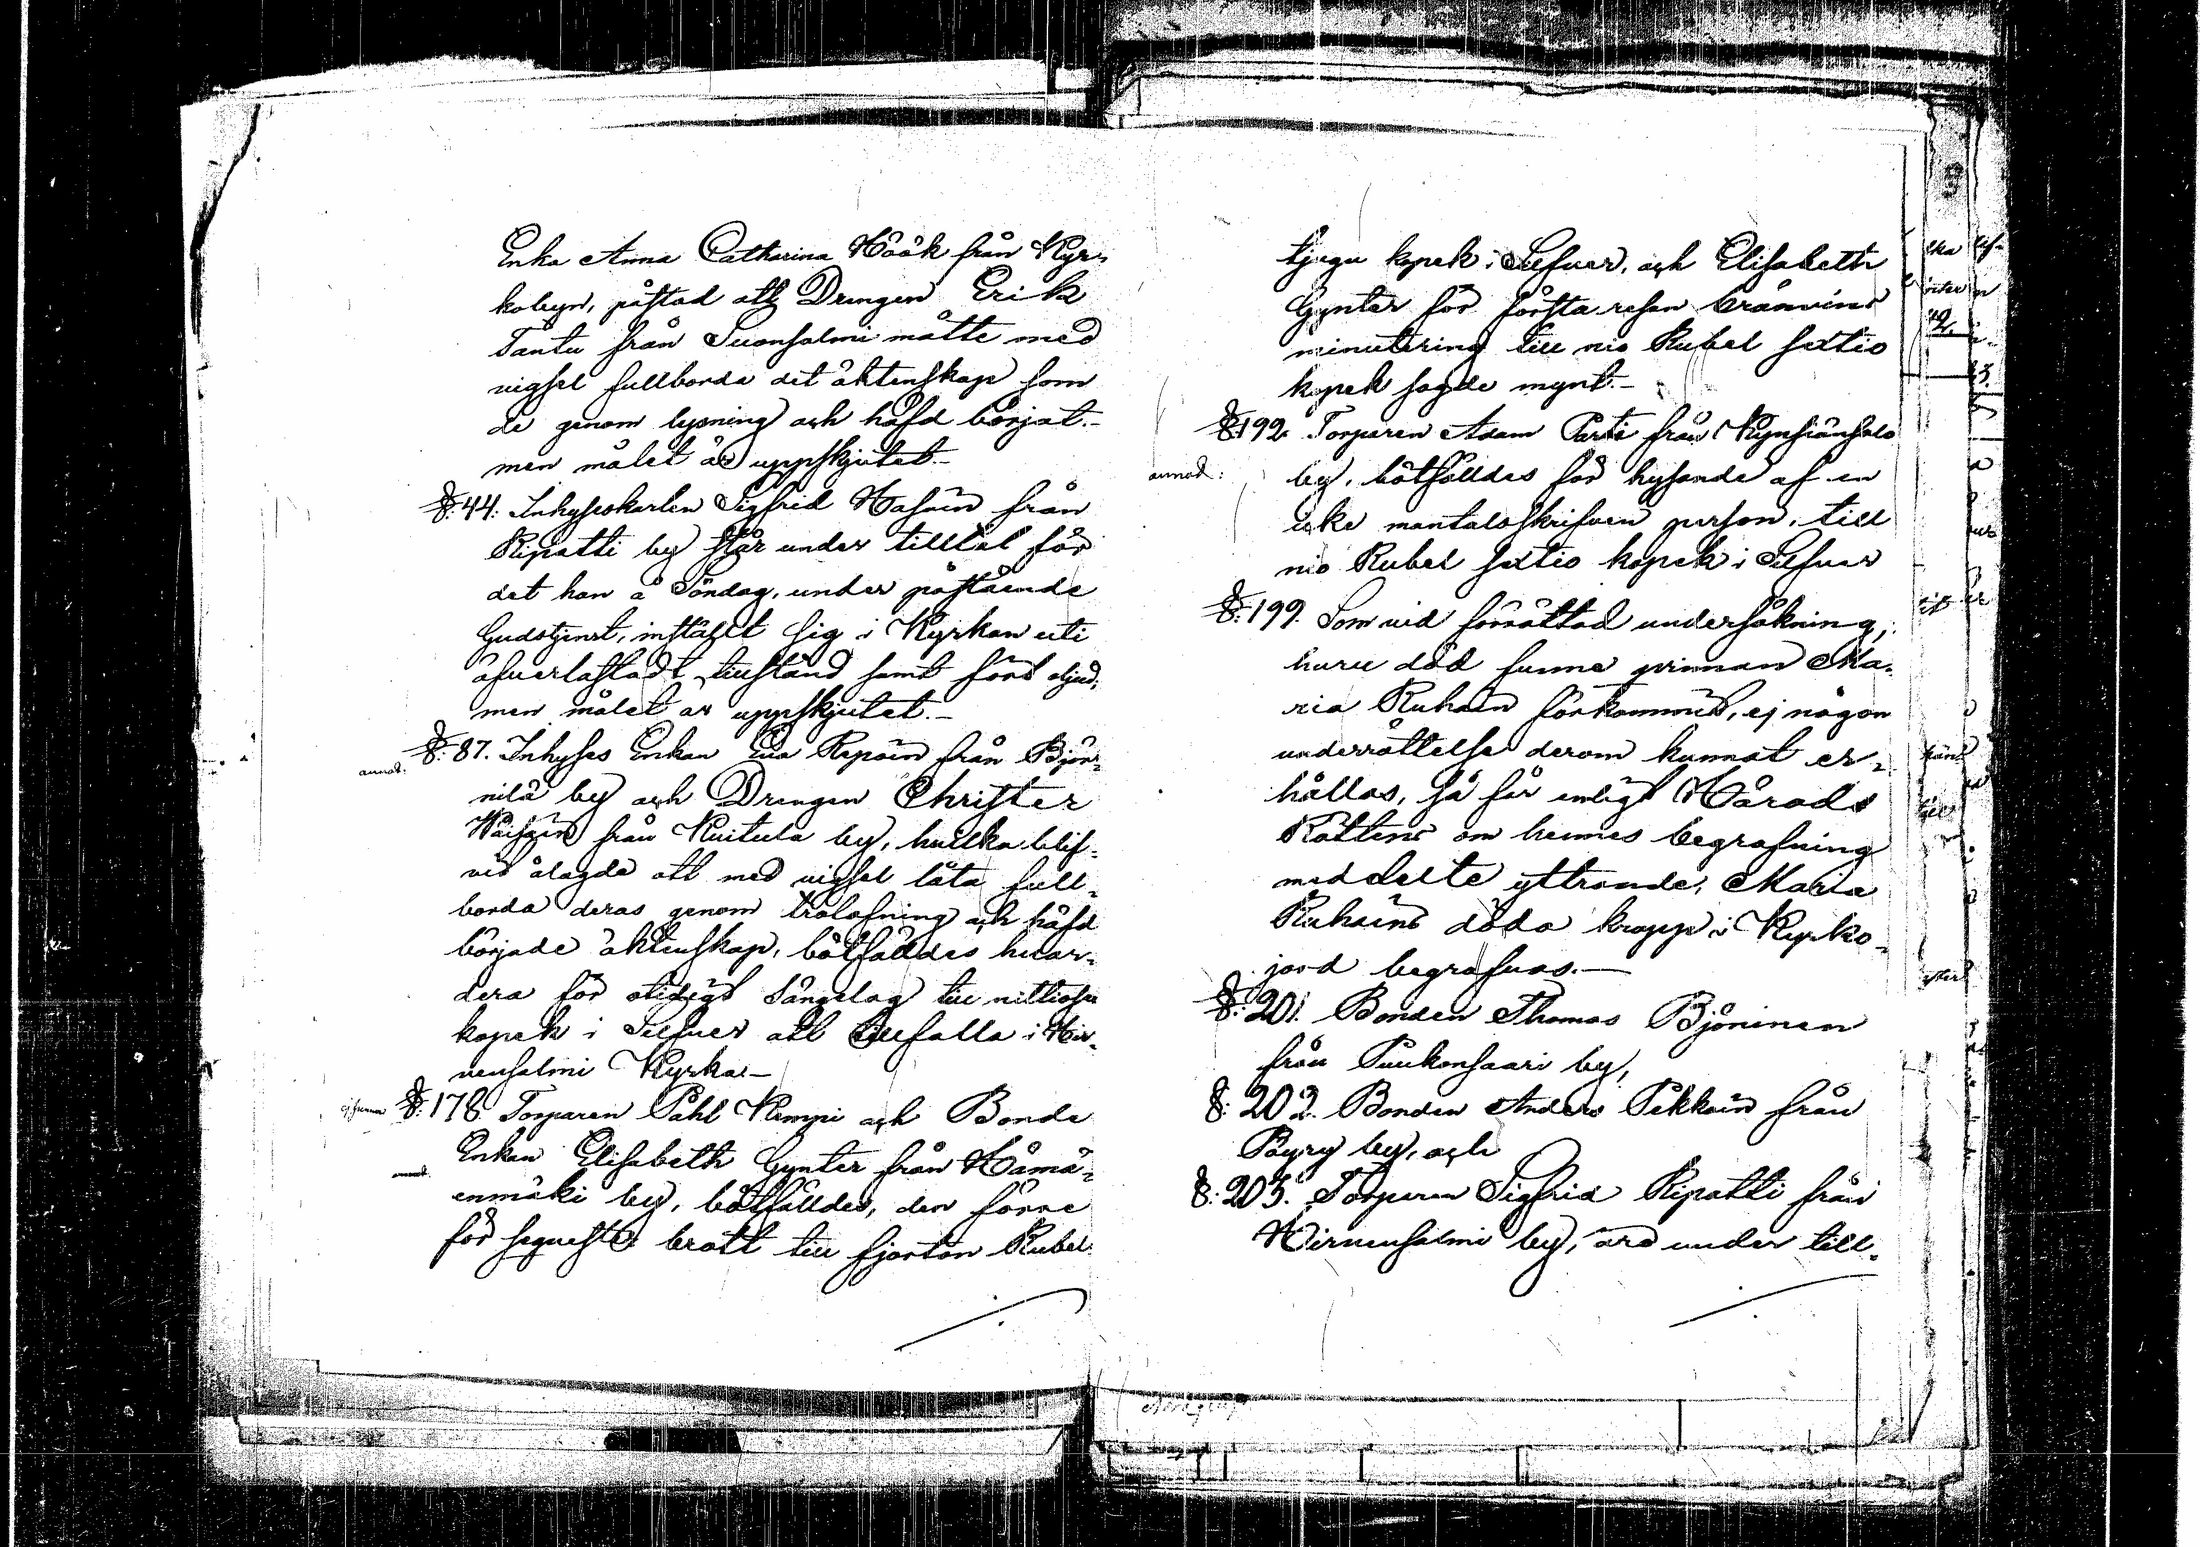 Enka Anna Catharina Höök från Kyr-
kobyn, påstad att Drengen Erik
Tantu från Suonsalmi måtte med
vigsel fullborda det äktenskap som
de genom lysning och häfd börjat.-
men målet är uppskjutet.-
§: 44. Inhyseskarlen Sigfrid Hasuin från
Ripatti by står under tilltal för
det han å Söndag, under påstående
Gudstjenst, inställt sig i Kyrkan uti
öfverlastadt tillstånd samt fört oljud;
men målet är uppskjutet.-
annot. §: 87. Inhyses Enkan Eva Repoin från Björ-
nilä by och Drengen Christer
Wäisäin från Kuitula by, hvilka blif-
vit ålagde att med vigsel låta full-
borda deras genom trolofning och häfd
började äktenskap, bötfälldes hvar-
dera för otidigt sängelag till nittiosex
kopek i Silfver att tillfalla i Hir-
vensalmi Kyrka.-
ej funna §: 178. Torparen Påhl Kempi och Bonde
Enkan Elisabeth Gynter från Hämä-
annot. enmäki by, bötfälldes, den förre
för sequesters brott till fjorton Rubel
tjugu kopek i Silfver, och Elisabeth
Gynter för första resan bränvins
minutering till nio Rubel sextio
kopek sagde mynt.-
§: 192. Torparen Adam Parti från Kynsiänsalo
annot: by, bötfälldes för hysande af en
icke mantalsskrifven person, till
nio Rubel sextio kopek i Silfver
§: 199. Som vid förrättad undersökning,
huru död funne qvinnan Ma-
ria Ruhain förkommit, ej någon
underrättelse derom kunnat er-
hållas, så får enligt Härads
Rättens om hennes begrafning
meddelte yttrande, Maria
Ruhains döda kropp i Kyrko-
jord begrafvas.-
§: 201. Bonden Thomas Björninen
från Puukonsaari by,
§: 202. Bonden Anders Pekkain från
Pöyry by, och
§: 203. Torparen Sigfrid Ripatti från
Hirvensalmi by, äro under till-